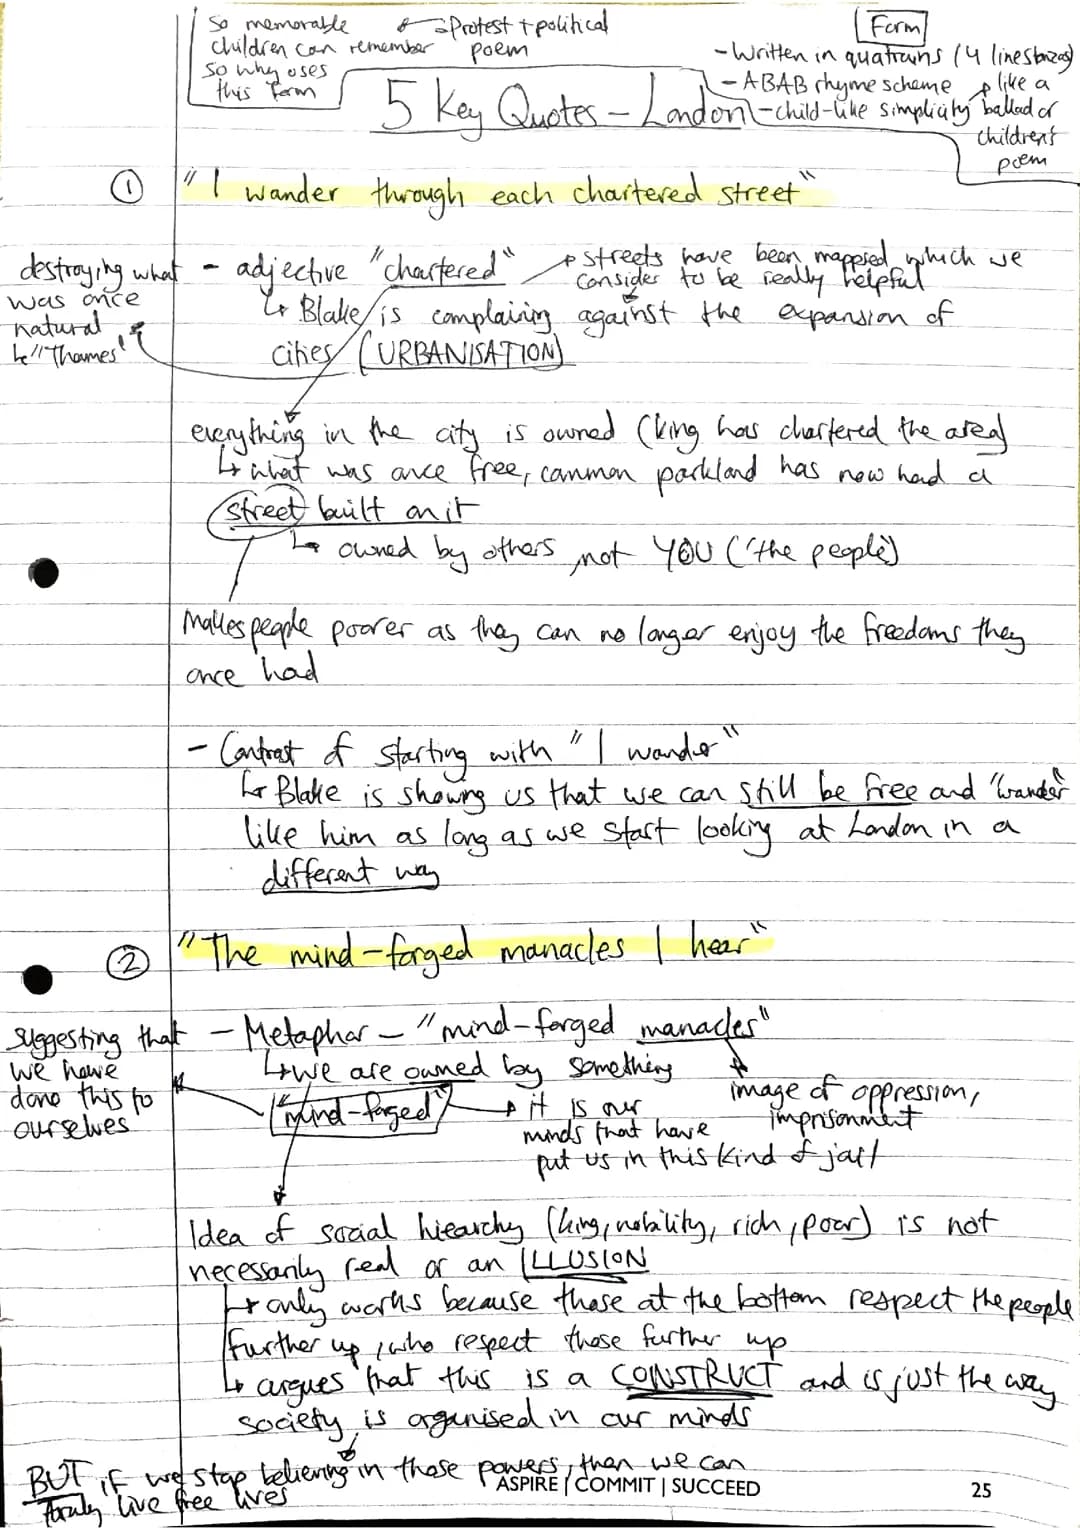 So memorable
children can remember
so why uses
this form
Protest + political
poem
Form
- Written in quatrains (4 line stanzas)
- ABAB rhyme scheme
- child-like simplicity
like a
ballad or
children's
poem
5 Key Quotes - London
① "I wander through each chartered street"
destroying what
was once
natural
"Thames"
- adjective "chartered"
streets have been mapped which we
consider to be really helpful
↳ Blake is complaining against the expansion of
cities (URBANISATION)
everything in the city is owned (king has chartered the area)
↳ what was once free, common parkland has now had a
street built on it
↳ owned by others, not YOU ('the people')
Makes people poorer as they can no longer enjoy the freedoms they
once had
- Contrast of starting with "I wander"
↳ Blake is showing us that we can still be free and "wander"
like him as long as we start looking at London in a
different way
② "The mind-forged manacles I hear"
suggesting that
we have
done this to
ourselves
- Metaphor - "mind-forged manacles"
↳ we are owned by something
"mind-forged"
→ it is our
minds that have
put us in this kind of jail
image of oppression,
imprisonment
Idea of social hiearchy (king, nobility, rich, poor) is not
necessarily real or an ILLUSION
↳ only works because those at the bottom respect the people
further up, who respect those further up
↳ argues that this is a CONSTRUCT and is just the way
society is organised in our minds
BUT if we stop believing in those powers, then we can
live free lives
ASPIRE | COMMIT | SUCCEED
25